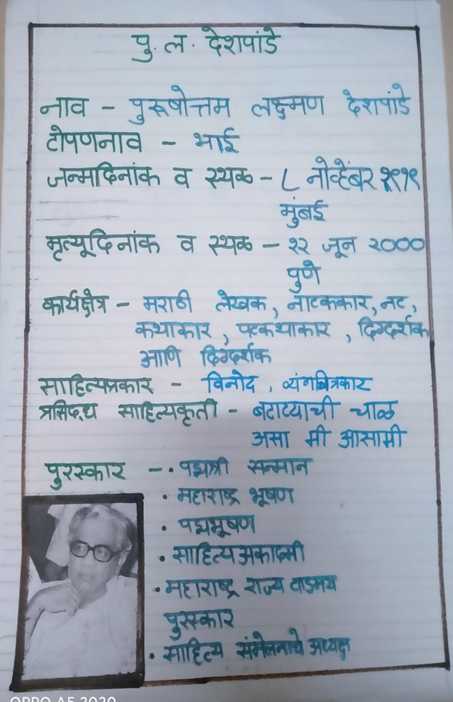 पु. ल. देशपांडे
नाव - पुरूषोत्तम लक्ष्मण देशपांडे
टोपणनाव - भाई
जन्मदिनांक व स्थळ - ८ नोव्हेंबर १९१९
मुंबई
मृत्यूदिनांक व स्थळ - १२ जून २०००
पुणे
कार्यक्षेत्र - मराठी लेखक, नाटककार, नट,
कथाकार, पटकथाकार, दिग्दर्शक
आणि दिग्दर्शक
साहित्यप्रकार - विनोद, व्यंगचित्रकार
प्रसिद्ध साहित्यकृती - बटाट्याची चाळ
असा मी आसामी
पुरस्कार - • पद्मश्री सन्मान
• महाराष्ट्र भूषण
• पद्मभूषण
• साहित्य अकादमी
• महाराष्ट्र राज्य वाङमय
पुरस्कार
• साहित्य संमेलनाचे अध्यक्ष
OPPO A5 2020